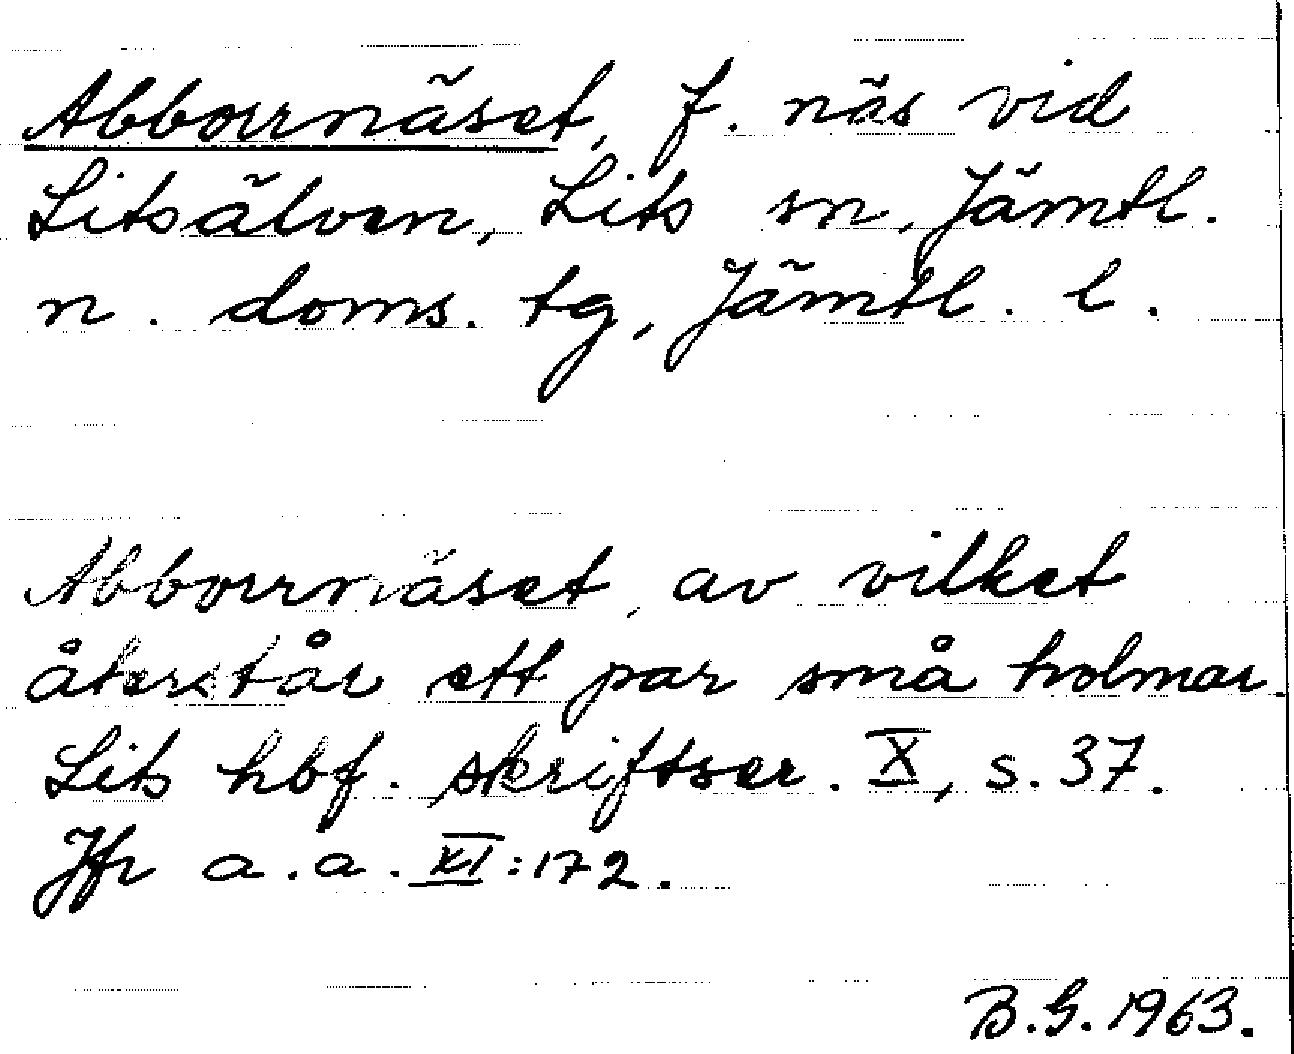 Abborrnäset, f. näs vid
Litsälven, Lits sn, Jämtl.
n. doms. tg, Jämtl. l.
Abborrnäset, av vilket
återstår ett par små holmar.
Lits hbf. skriftser. X, s. 37.
Jfr a.a. XI:172.
B.G. 1963.